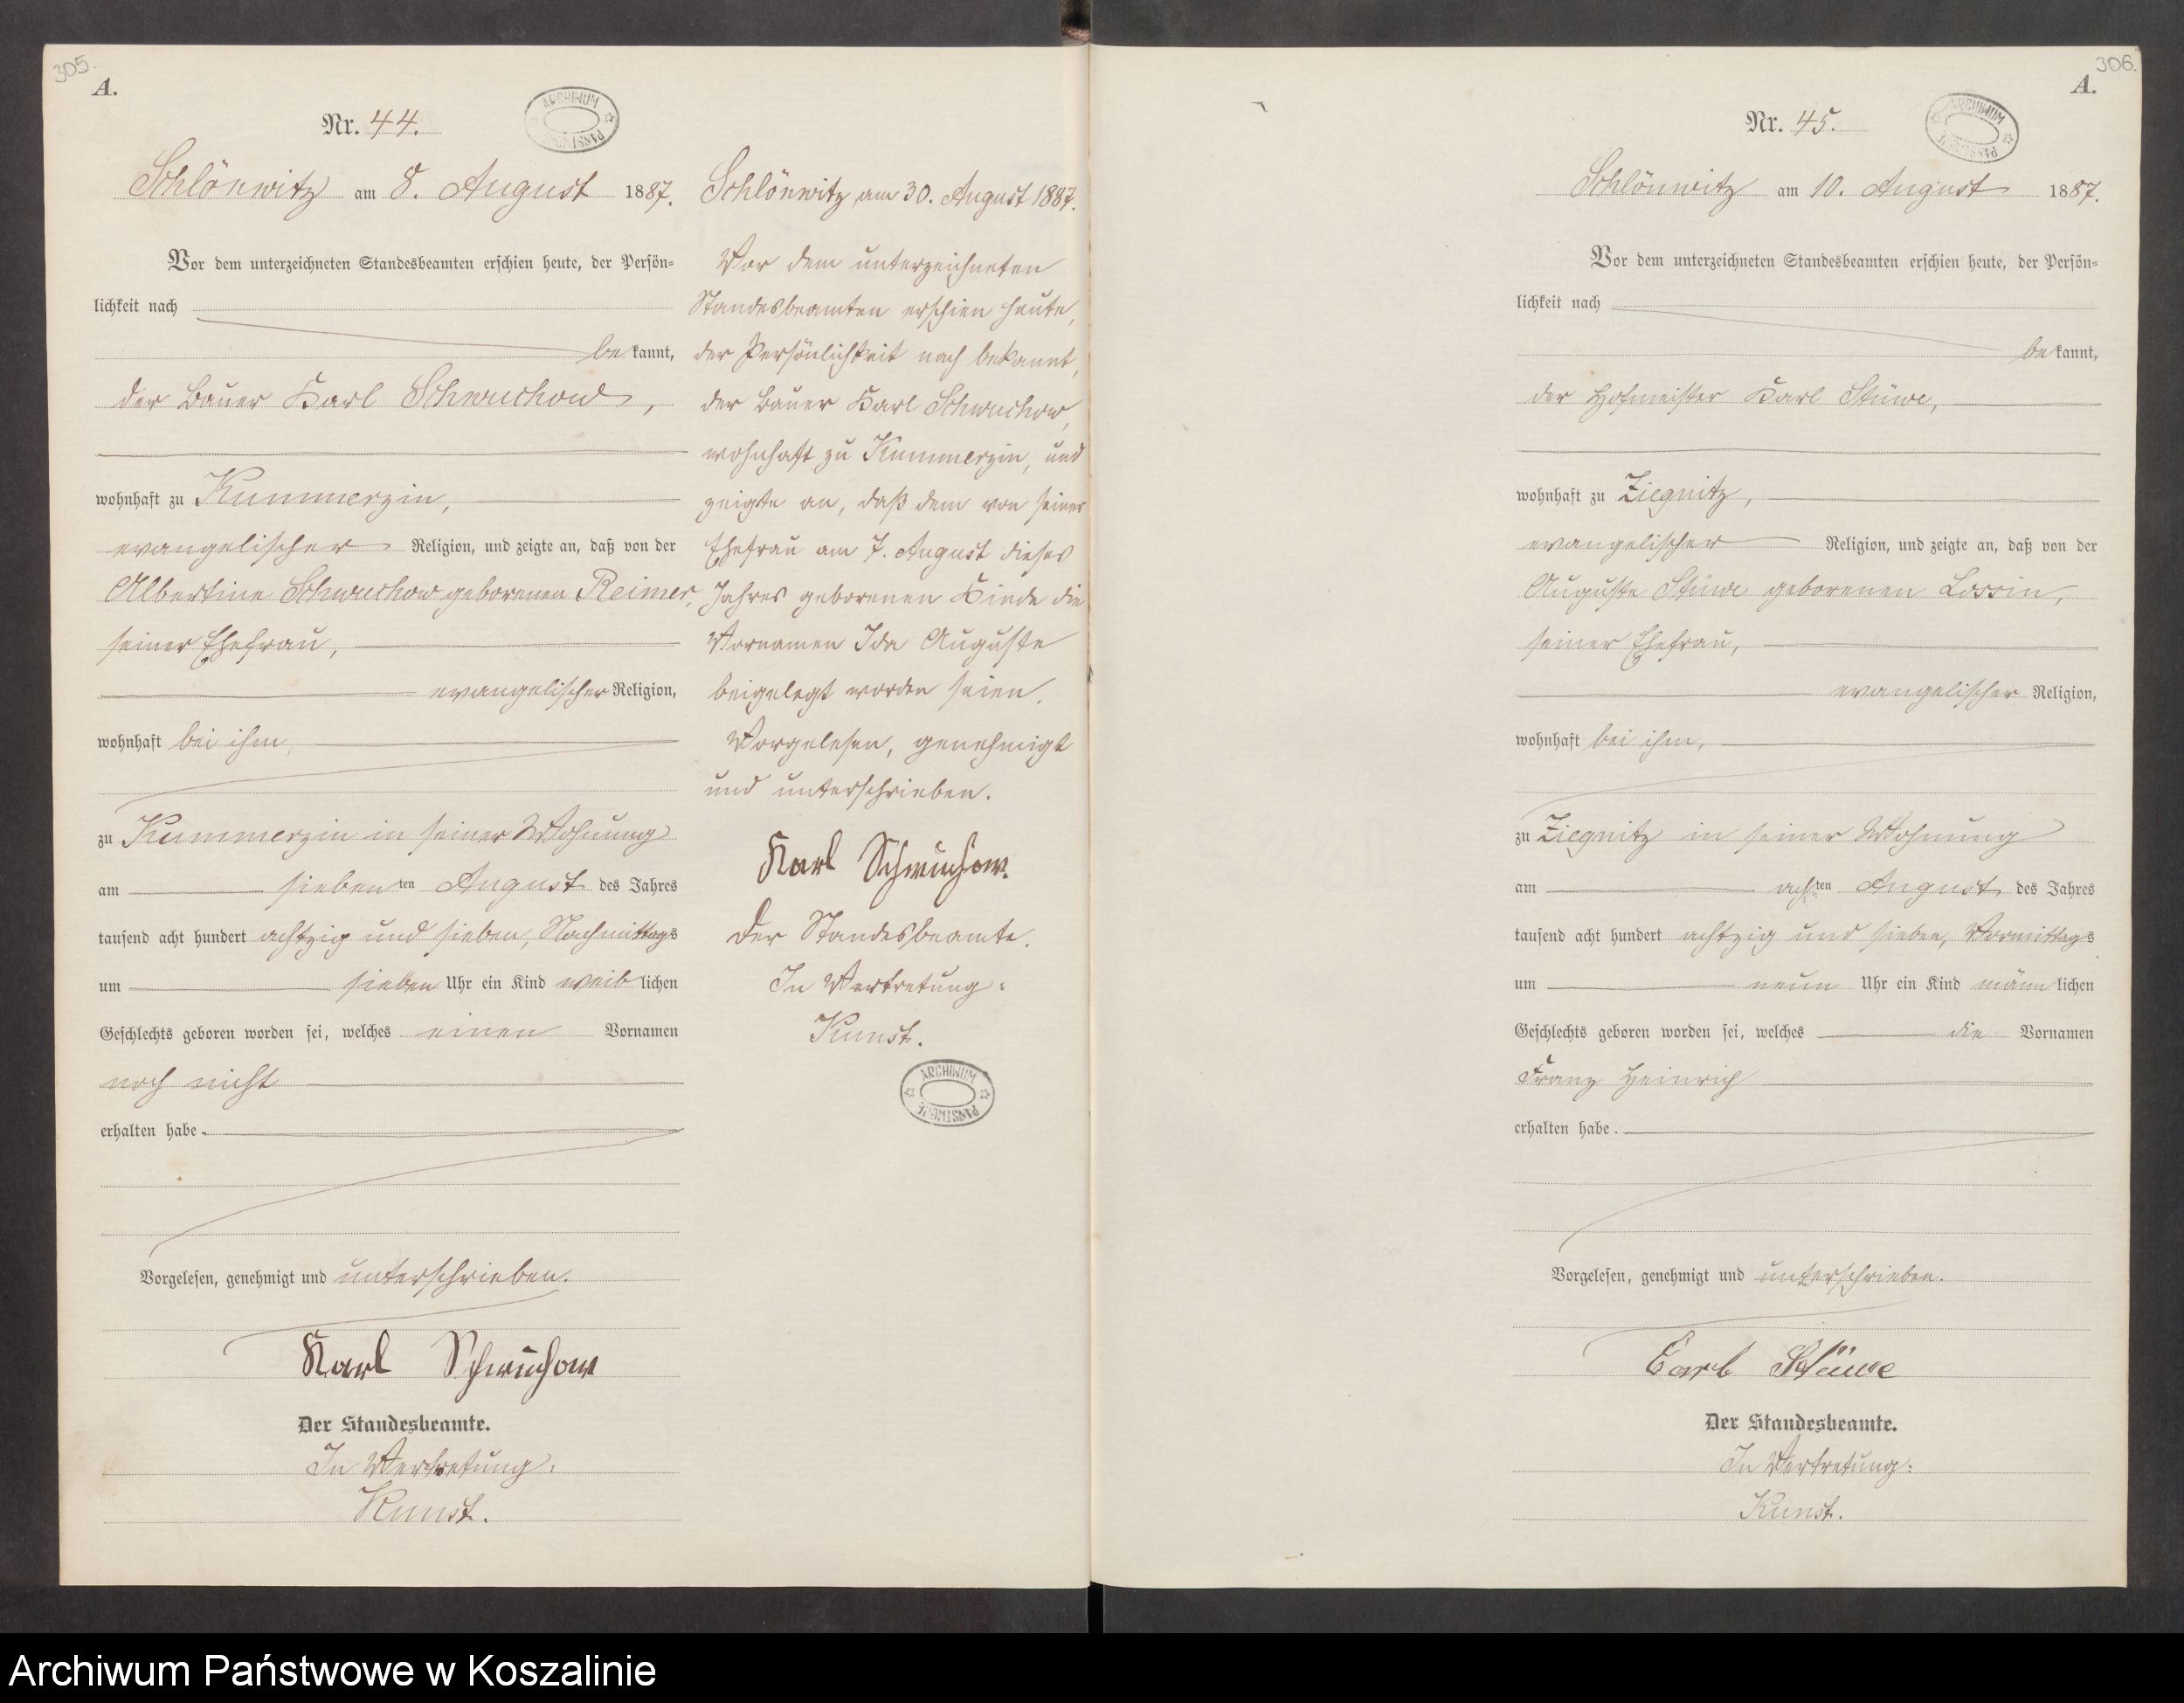 305.
A.
Nr. 44.
ARCHIWUM
Schlönwitz am 8. August 1887.
Vor dem unterzeichneten Standesbeamten erschien heute, der Persön=
lichkeit nach
bekannt,
der Bauer Karl Schwuchow,
wohnhaft zu Kummerzin,
evangelischer Religion, und zeigte an, daß von der
Albertine Schwuchow geborenen Reimer,
seiner Ehefrau,
evangelischer Religion,
wohnhaft bei ihm,
zu Kummerzin in seiner Wohnung
am siebenten August des Jahres
tausend acht hundert achtzig und sieben, Nachmittags
um sieben Uhr ein Kind weiblichen
Geschlechts geboren worden sei, welches einen Vornamen
noch nicht
erhalten habe.
Vorgelesen, genehmigt und unterschrieben.
Karl Schwuchow
Der Standesbeamte.
In Vertretung:
Kunst.
Schlönwitz, am 30. August 1887.
Vor dem unterzeichneten
Standesbeamten erschien heute,
der Persönlichkeit nach bekannt,
der Bauer Karl Schwuchow,
wohnhaft zu Kummerzin, und
zeigte an, daß dem von seiner
Ehefrau am 7. August dieses
Jahres geborenen Kinde die
Vornamen Ida Auguste
beigelegt worden seien.
Vorgelesen, genehmigt
und unterschrieben.
Karl Schwuchow.
Der Standesbeamte.
In Vertretung:
Kunst.
ARCHIWUM
PAŃSTWOWE
306.
A.
Nr. 45.
ARCHIWUM
Schlönwitz am 10. August 1887.
Vor dem unterzeichneten Standesbeamten erschien heute, der Persön=
lichkeit nach
bekannt,
der Hofmeister Karl Stüwe,
wohnhaft zu Ziegnitz,
evangelischer Religion, und zeigte an, daß von der
Auguste Stüwe geborenen Lossin,
seiner Ehefrau,
evangelischer Religion,
wohnhaft bei ihm,
zu Ziegnitz in seiner Wohnung
am achten August des Jahres
tausend acht hundert achtzig und sieben, Vormittags
um neun Uhr ein Kind männlichen
Geschlechts geboren worden sei, welches die Vornamen
Franz Heinrich
erhalten habe.
Vorgelesen, genehmigt und unterschrieben.
Carl Stüwe
Der Standesbeamte.
In Vertretung:
Kunst.
Archiwum Państwowe w Koszalinie